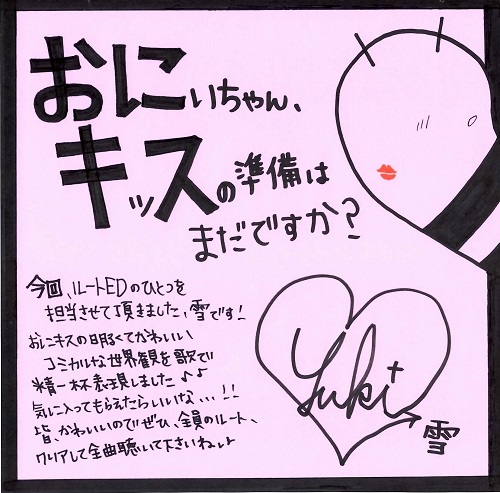 おにいちゃん、
キッスの準備は
まだですか?
今回、ルートEDのひとつを
担当させて頂きました、雪です!
おにキスの明るくてかわいい
コミカルな世界観を歌で
精一杯表現しました♪♪
気に入ってもらえたらいいな、、、!!
皆、かわいいのでぜひ、全員のルート、
クリアして全曲聴いて下さいねっ♪
Yuki
雪